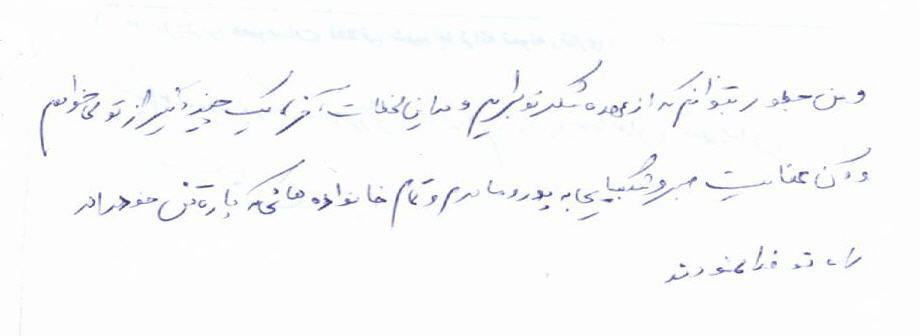 و من چطور بتوانم که از عهده شکر تو برایم و در این لحظات آخر یک چیز دیگر از تو می خواهم
و آن عنایت صبر و شکیبایی به پدر و مادرم و تمام خانواده هائی که پاره تن خود را در
راه تو فدا نمودند